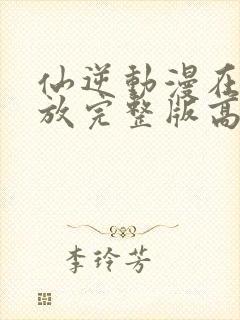 仙逆動漫在
放完整版高
李玲芳